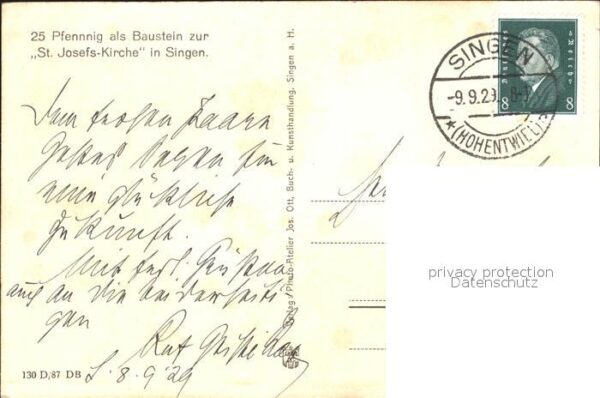 25 Pfennnig als Baustein zur
„St. Josefs-Kirche" in Singen.
Dem frohen Paare
Gottes Segen für
eine glückliche
Zukunft.
Mit herzl. Grüßen
auch an die beiderseiti
gen
8.9.29
130 D,87 DB
Verlag/Photo-Atelier Jos. Ott, Buch- u. Kunsthandlung, Singen a. H.
SINGEN
-9.9.29. 8-
(HOHENTWIEL)
8 8
privacy protection
Datenschutz